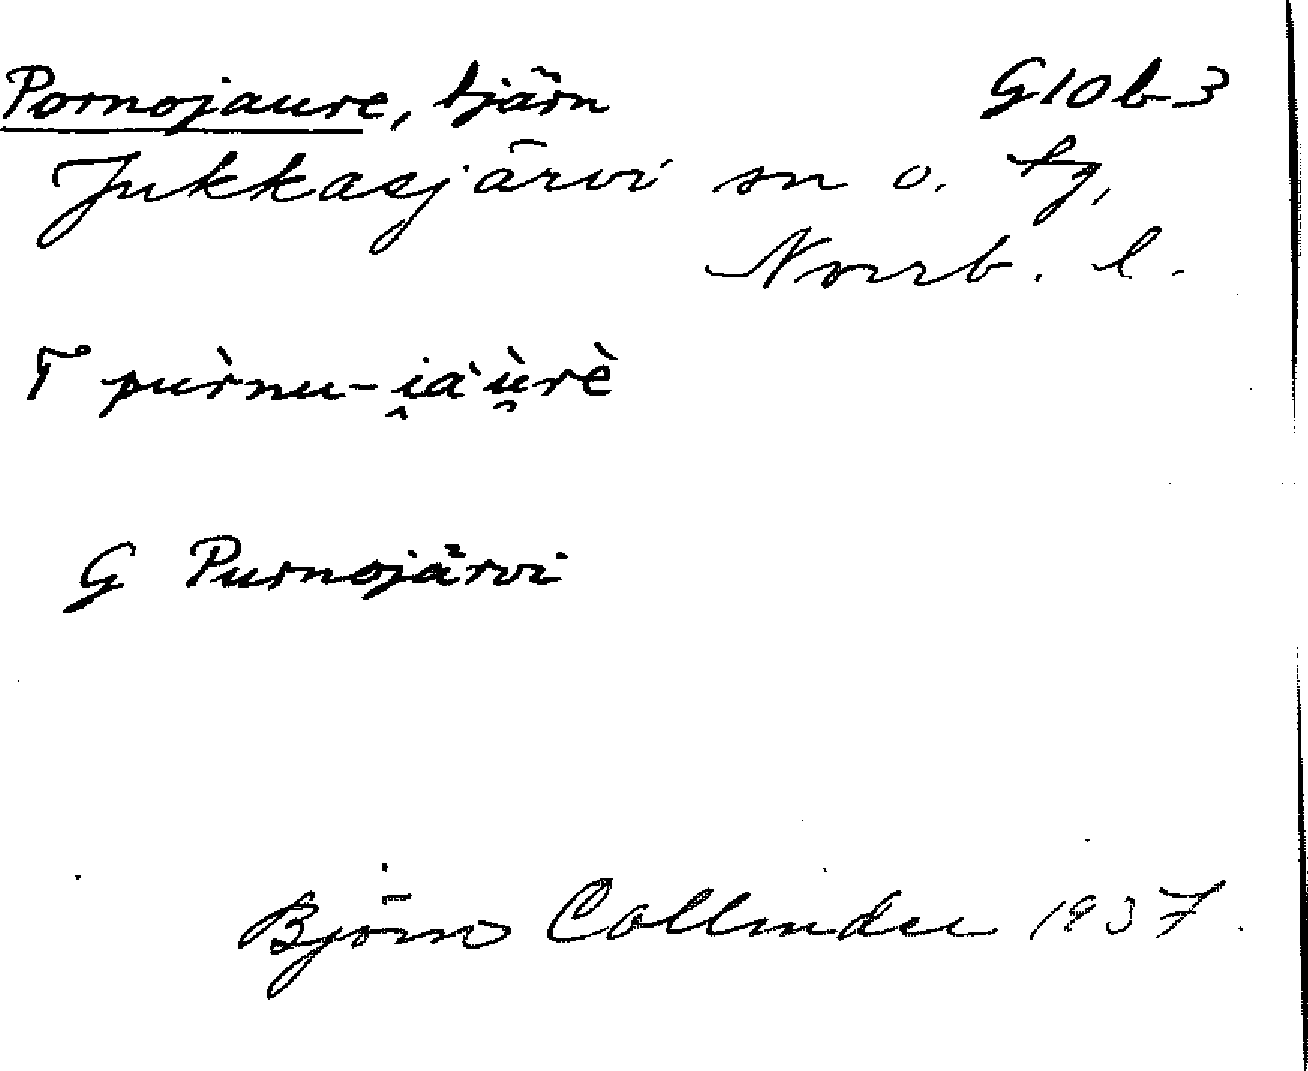 Pornojaure, tjärn G10b3
Jukkasjärvi sn o. tg,
Norrb. l.
T pur̀nu-i̯àù̯rè
G Purnojärvi
Björn Collinder 1937.